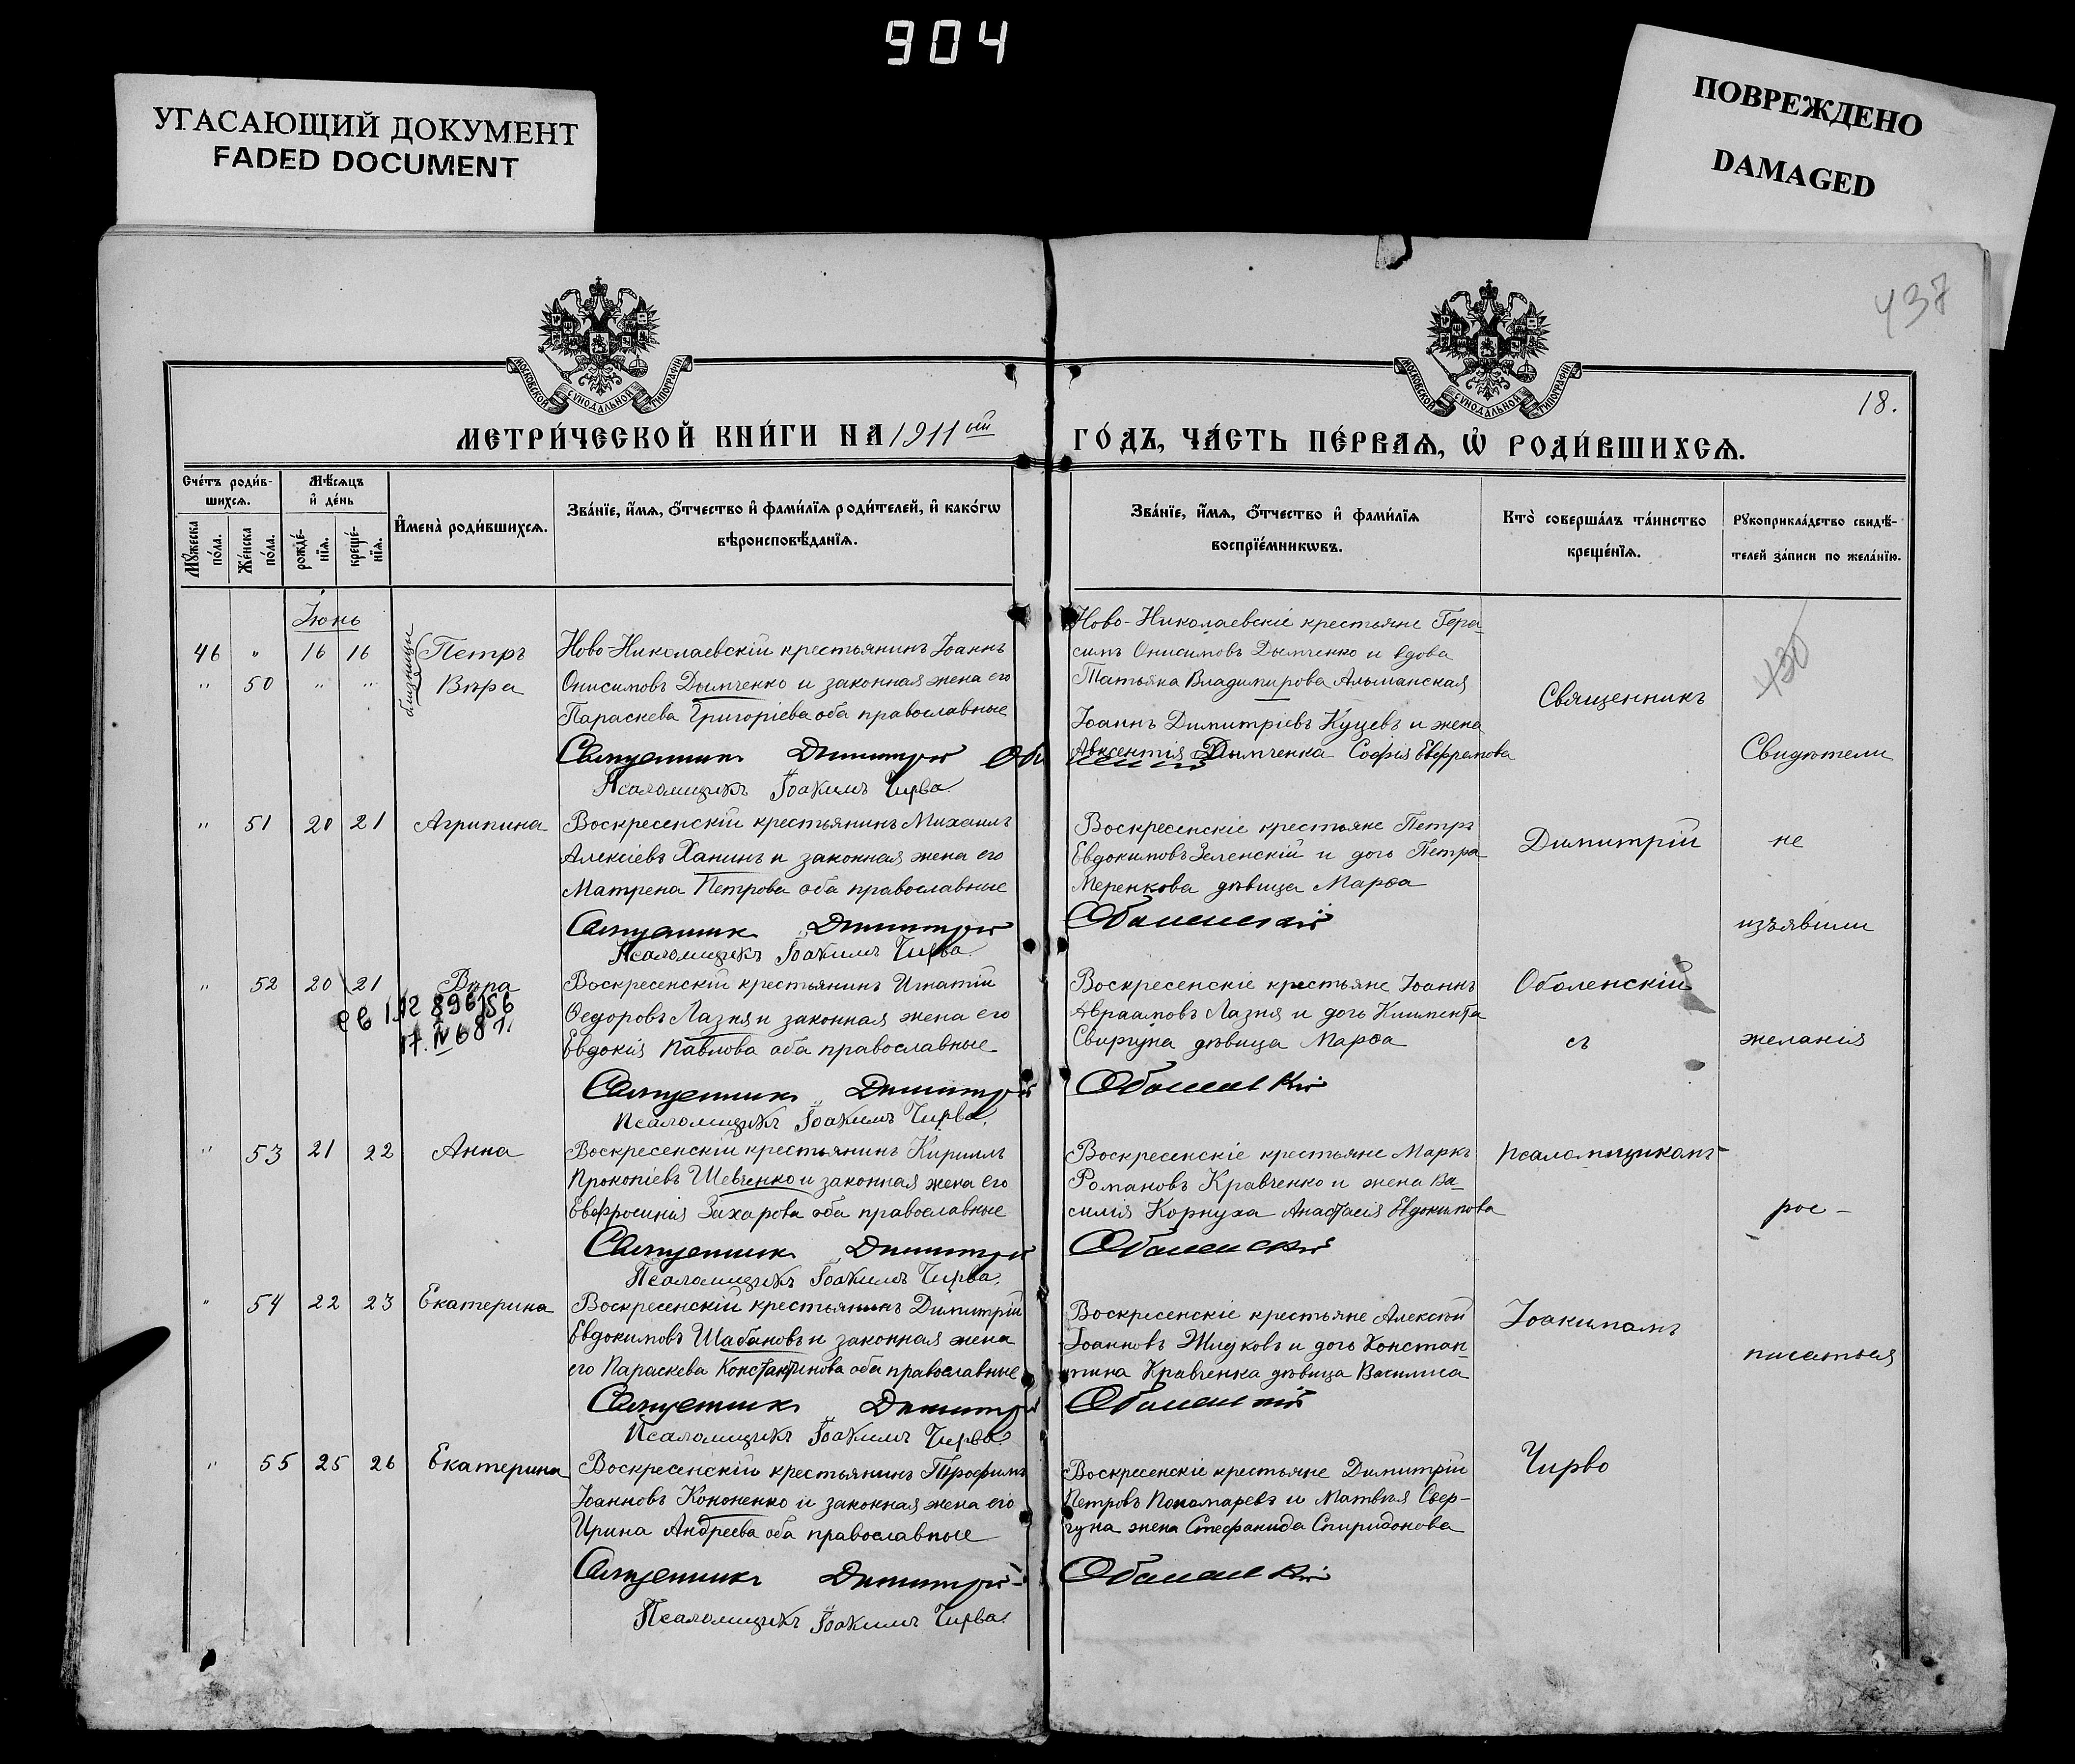 904
УГАСАЮЩИЙ ДОКУМЕНТ
FADED DOCUMENT
ПОВРЕЖДЕНО
DAMAGED
437
МОСКОВСКОЙ СѴНОДАЛЬНОЙ ТИПОГРАФІИ
МОСКОВСКОЙ СѴНОДАЛЬНОЙ ТИПОГРАФІИ
18.
МЕТРИ́ЧЕСКОЙ КНИ́ГИ НА 1911 ый
ГО́ДЪ, ЧА́СТЬ ПЕ́РВАѦ, Ѡ҆ РОДИ́ВШИХСѦ.
Сче́тъ роди́в-
шихсѧ.
Мѣ́сѧцъ
и҆ де́нь
Мꙋ́жеска
по́ла.
Же́нска
по́ла.
рожде́-
нїѧ.
креще́-
нїѧ.
И҆мена̀ роди́вшихсѧ.
Зва́нїе, и҆́мѧ, о҆́тчество и҆ фами́лїѧ роди́телей, и҆ како́гѡ
вѣроисповѣ́данїѧ.
Зва́нїе, и҆́мѧ, о҆́тчество и҆ фами́лїѧ
воспрїе́мникѡвъ.
Кто̀ соверша́лъ та́инство
креще́нїѧ.
Рꙋкоприкла́дство свидѣ́-
телей за́писи по жела́нїю.
Іюнь
46 " 16 16 Петръ
" 50 " " Вѣра
близнецы
Ново-Николаевскій крестьянинъ Іоаннъ
Онисимовъ Дымченко и законная жена его
Параскева Григоріева оба православные
Священникъ Димитрій Об
Псаломщикъ Іоакимъ Чирва.
Ново-Николаевскіе крестьяне Гера-
симъ Онисимовъ Дымченко и вдова
Татьяна Владимирова Альманская
Іоаннъ Димитріевъ Куцевъ и жена
Авксентія Дымченка Софія Евфремова
" 51 20 21 Агрипина
Воскресенскій крестьянинъ Михаилъ
Алексіевъ Ханинъ и законная жена его
Матрена Петрова оба православные
Священникъ Димитрій Оболенскій
Псаломщикъ Іоакимъ Чирва.
Воскресенскіе крестьяне Петръ
Евдокимовъ Зеленскій и дочь Петра
Меренкова дѣвица Марѳа
" 52 20 21 Вѣра
св 1.12 896156
17. IV 68 г.
Воскресенскій крестьянинъ Игнатій
Ѳедоровъ Лазня и законная жена его
Евдокія Павлова оба православные
Священникъ Димитрій Оболенскій
Псаломщикъ Іоакимъ Чирва.
Воскресенскіе крестьяне Іоаннъ
Авраамовъ Лазня и дочь Климента
Свиргуна дѣвица Марѳа
" 53 21 22 Анна
Воскресенскій крестьянинъ Кириллъ
Прокопіевъ Шевченко и законная жена его
Евфросинія Захарова оба православные
Священникъ Димитрій Оболенскій
Псаломщикъ Іоакимъ Чирва.
Воскресенскіе крестьяне Маркъ
Романовъ Кравченко и жена Ва-
силія Корнуха Анастасія Евдокимова
" 54 22 23 Екатерина
Воскресенскій крестьянинъ Димитрій
Евдокимовъ Шабановъ и законная жена
его Параскева Константинова оба православные
Священникъ Димитрій Оболенскій
Псаломщикъ Іоакимъ Чирва.
Воскресенскіе крестьяне Алексѣй
Іоанновъ Жидковъ и дочь Констан-
тина Кравченка дѣвица Василиса
" 55 25 26 Екатерина
Воскресенскій крестьянинъ Трофимъ
Іоанновъ Кононенко и законная жена его
Ирина Андреева оба православные
Священникъ Димитрій Оболенскій
Псаломщикъ Іоакимъ Чирва.
Воскресенскіе крестьяне Димитрій
Петровъ Пономаревъ и Матвѣя Свер-
гуна жена Стефанида Спиридонова
Священникъ
Димитрій
Оболенскій
съ
псаломщикомъ
Іоакимомъ
Чирво
430
Свидѣтели
не
изъявили
желанія
рос-
писаться